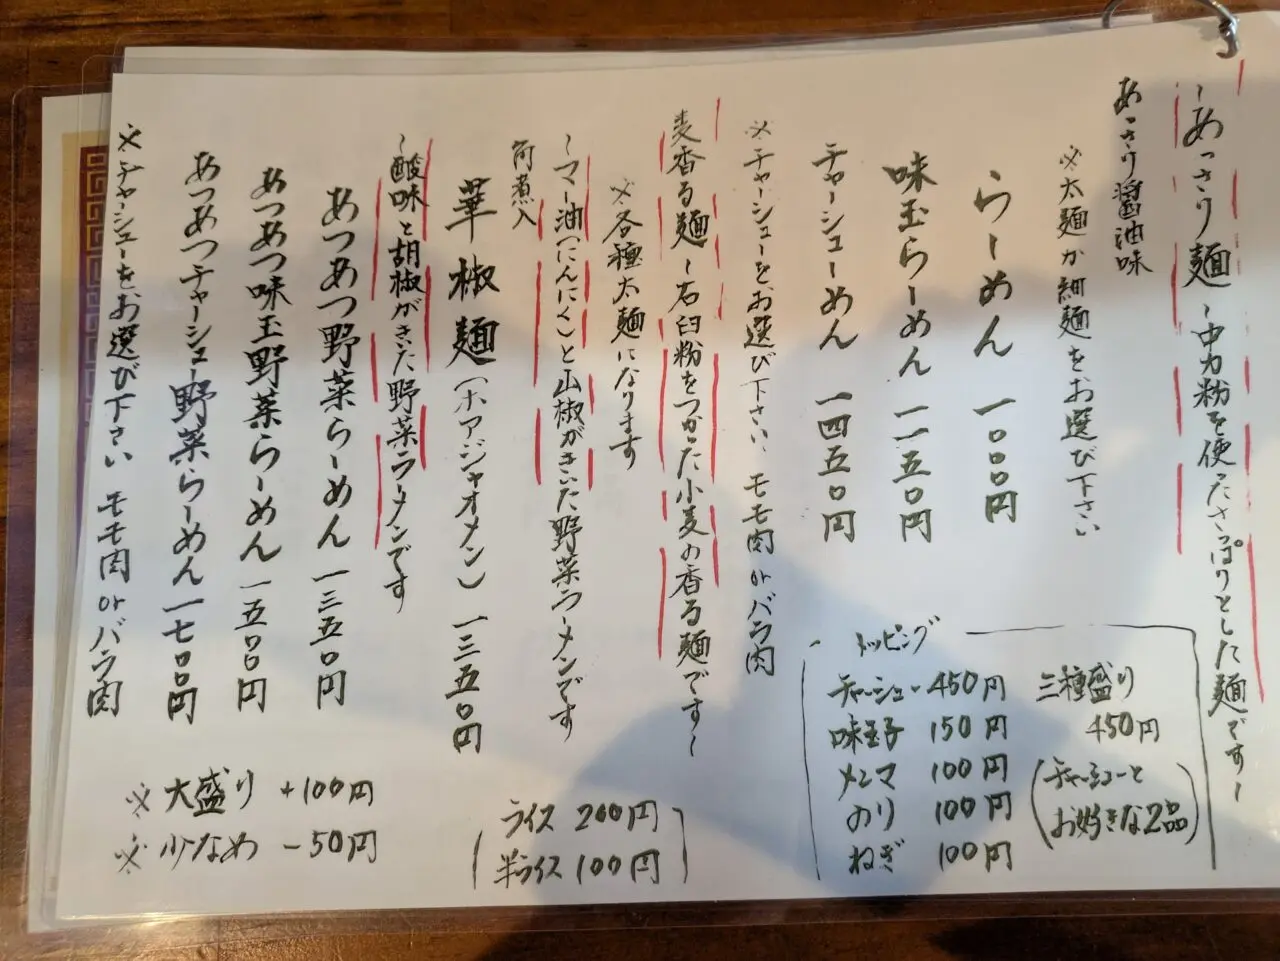 ～あっさり麺～中力粉を使ったさっぱりとした麺です～
あっさり醤油味
※太麺か細麺をお選び下さい
らーめん 一〇〇〇円
味玉らーめん 一一五〇円
チャーシューめん 一四五〇円
※チャーシューをお選び下さい モモ肉 or バラ肉
麦香る麺～石臼粉をつかった小麦の香る麺です～
※各種太麺になります
～マー油(にんにく)と山椒がきいた野菜ラーメンです
角煮入
華椒麺(ホアジャオメン) 一三五〇円
～酸味と胡椒がきいた野菜ラーメンです
あつあつ野菜らーめん 一三五〇円
あつあつ味玉野菜らーめん 一五〇〇円
あつあつチャーシュー野菜らーめん 一七〇〇円
※チャーシューをお選び下さい モモ肉 or バラ肉
トッピング
チャーシュー 450円
味玉子 150円
メンマ 100円
のり 100円
ねぎ 100円
三種盛り
450円
(チャーシューと
お好きな2品)
ライス 200円
半ライス 100円
※大盛り +100円
※少なめ -50円